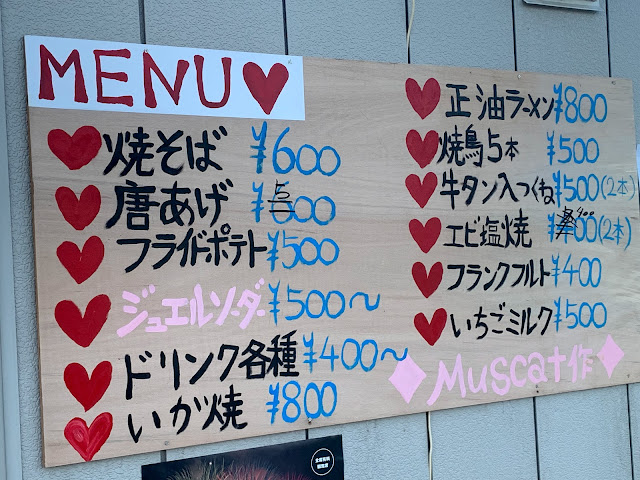 MENU
焼そば ¥600
唐あげ ¥500
フライドポテト ¥500
ジュエルソーダー ¥500〜
ドリンク各種 ¥400〜
いか焼 ¥800
正油ラーメン ¥800
焼鳥5本 ¥500
牛タン入つくね ¥500(2本)
エビ塩焼 ¥400(2本)
フランクフルト ¥400
いちごミルク ¥500
Muscat作